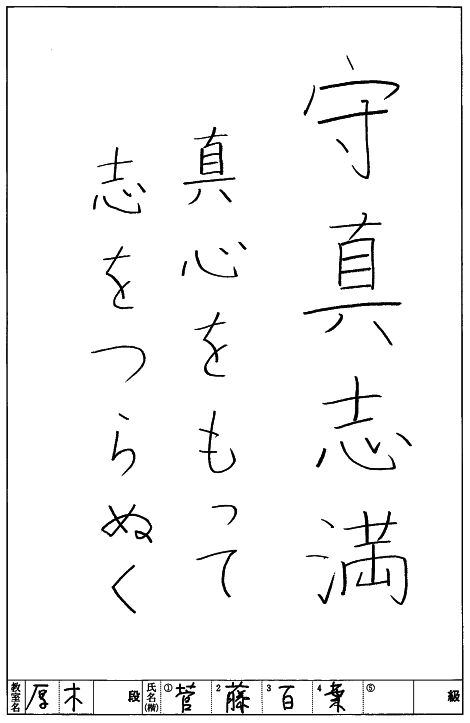 守真志満
真心をもって
志をつらぬく
教室名 厚木 段 氏名(楷) ① 菅 2 藤 3 百 4 葉 ⑤ 級